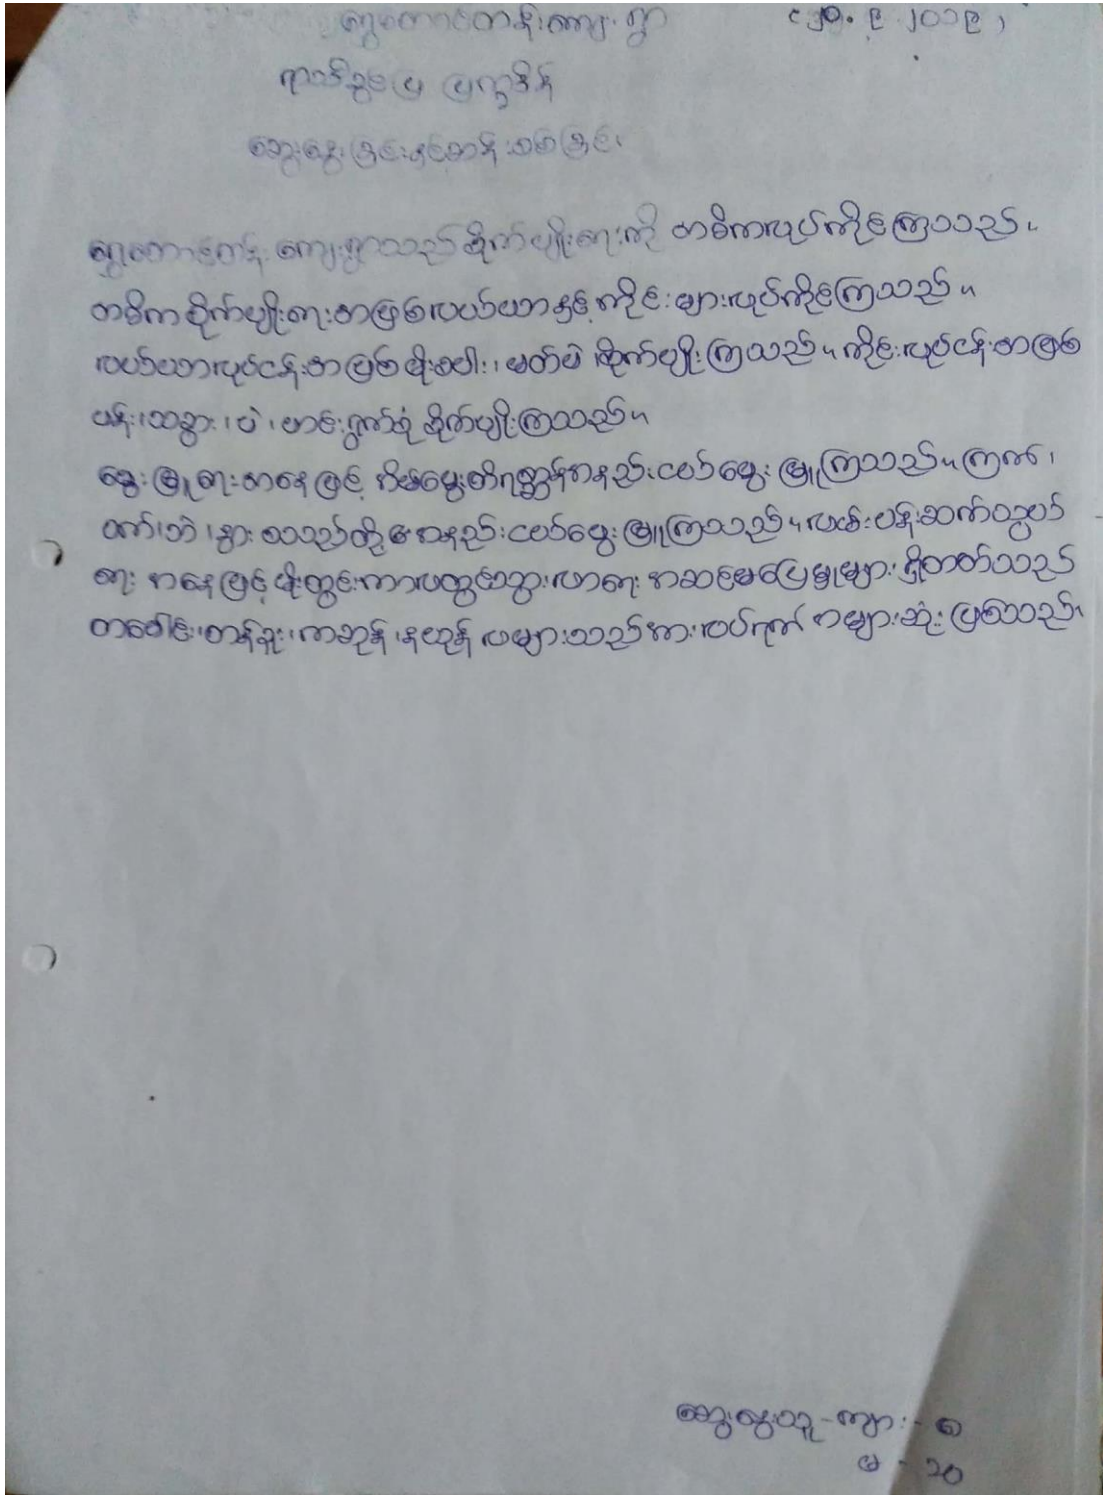 ရွှေတောင်တန်းကျေးရွာ (၂၀.၉.၂၀၁၉)
ရာသီခွင်ပြ ပြက္ခဒိန်
ဆွေးနွေးခြင်းနှင့်ဆန်းစစ်ခြင်း
ရွှေတောင်တန်း ကျေးရွာသည် စိုက်ပျိုးရေးကို အဓိကလုပ်ကိုင်ကြသည်။
အဓိက စိုက်ပျိုးရေးအဖြစ် လယ်ယာနှင့် ကိုင်းများလုပ်ကိုင်ကြသည်။
လယ်ယာလုပ်ငန်းအဖြစ် မိုးစပါး၊ မတ်ပဲ စိုက်ပျိုးကြသည်။ ကိုင်းလုပ်ငန်းအဖြစ်
ပန်း၊ သခွား၊ ပဲ၊ ဟင်းရွက်စုံ စိုက်ပျိုးကြသည်။
မွေးမြူရေးအနေဖြင့် အိမ်မွေးတိရစ္ဆာန်အနည်းငယ်မွေးမြူကြသည်။ ကြက်၊
ဝက်၊ ဘဲ၊ နွား စသည်တို့ အနည်းငယ်မွေးမြူကြသည်။ လမ်းပန်းဆက်သွယ်
ရေး အနေဖြင့် မိုးတွင်းကာလတွင်သွားလာရေး အဆင်မပြေမှုများ ရှိတတ်သည်
တပေါင်း၊ တန်ခူး၊ ကဆုန်၊ နယုန် လများသည်အားလပ်ရက် အများဆုံး ဖြစ်သည်။
ဆွေးနွေးသူ - ကျား - ၈
မ - ၁၀